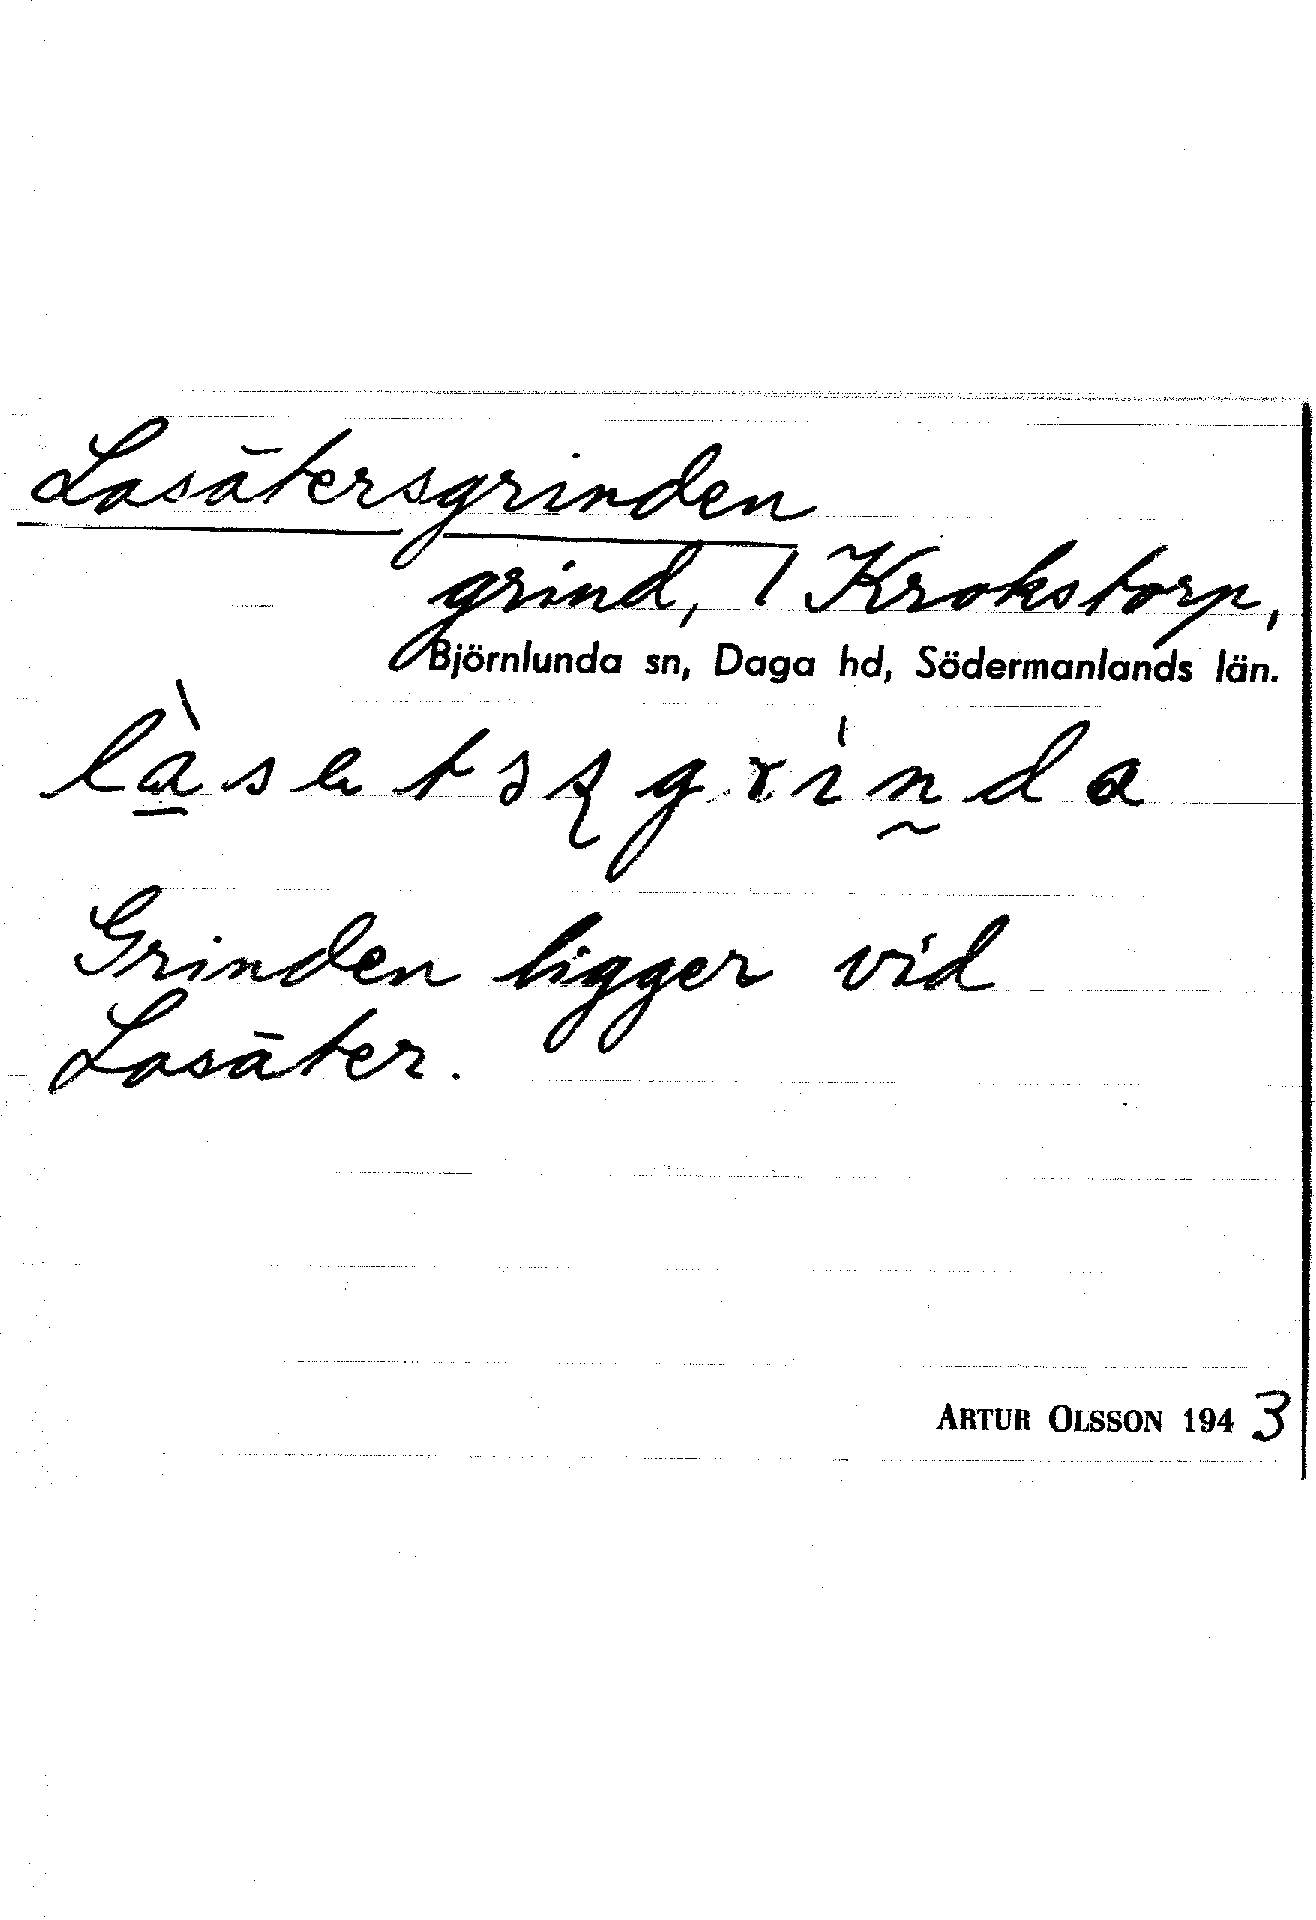 Lasätersgrinden
grind, 1 Krokstorp,
Björnlunda sn, Daga hd, Södermanlands län.
Grinden ligger vid
Lasäter.
ARTUR OLSSON 1943